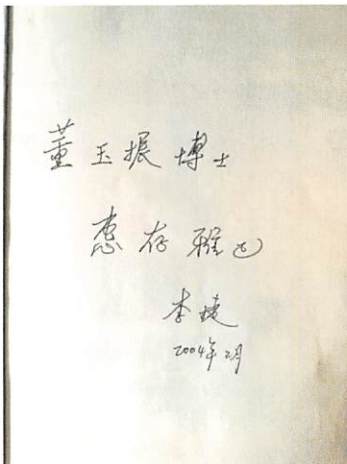 董玉振博士
惠存雅正
李捷
2004年2月